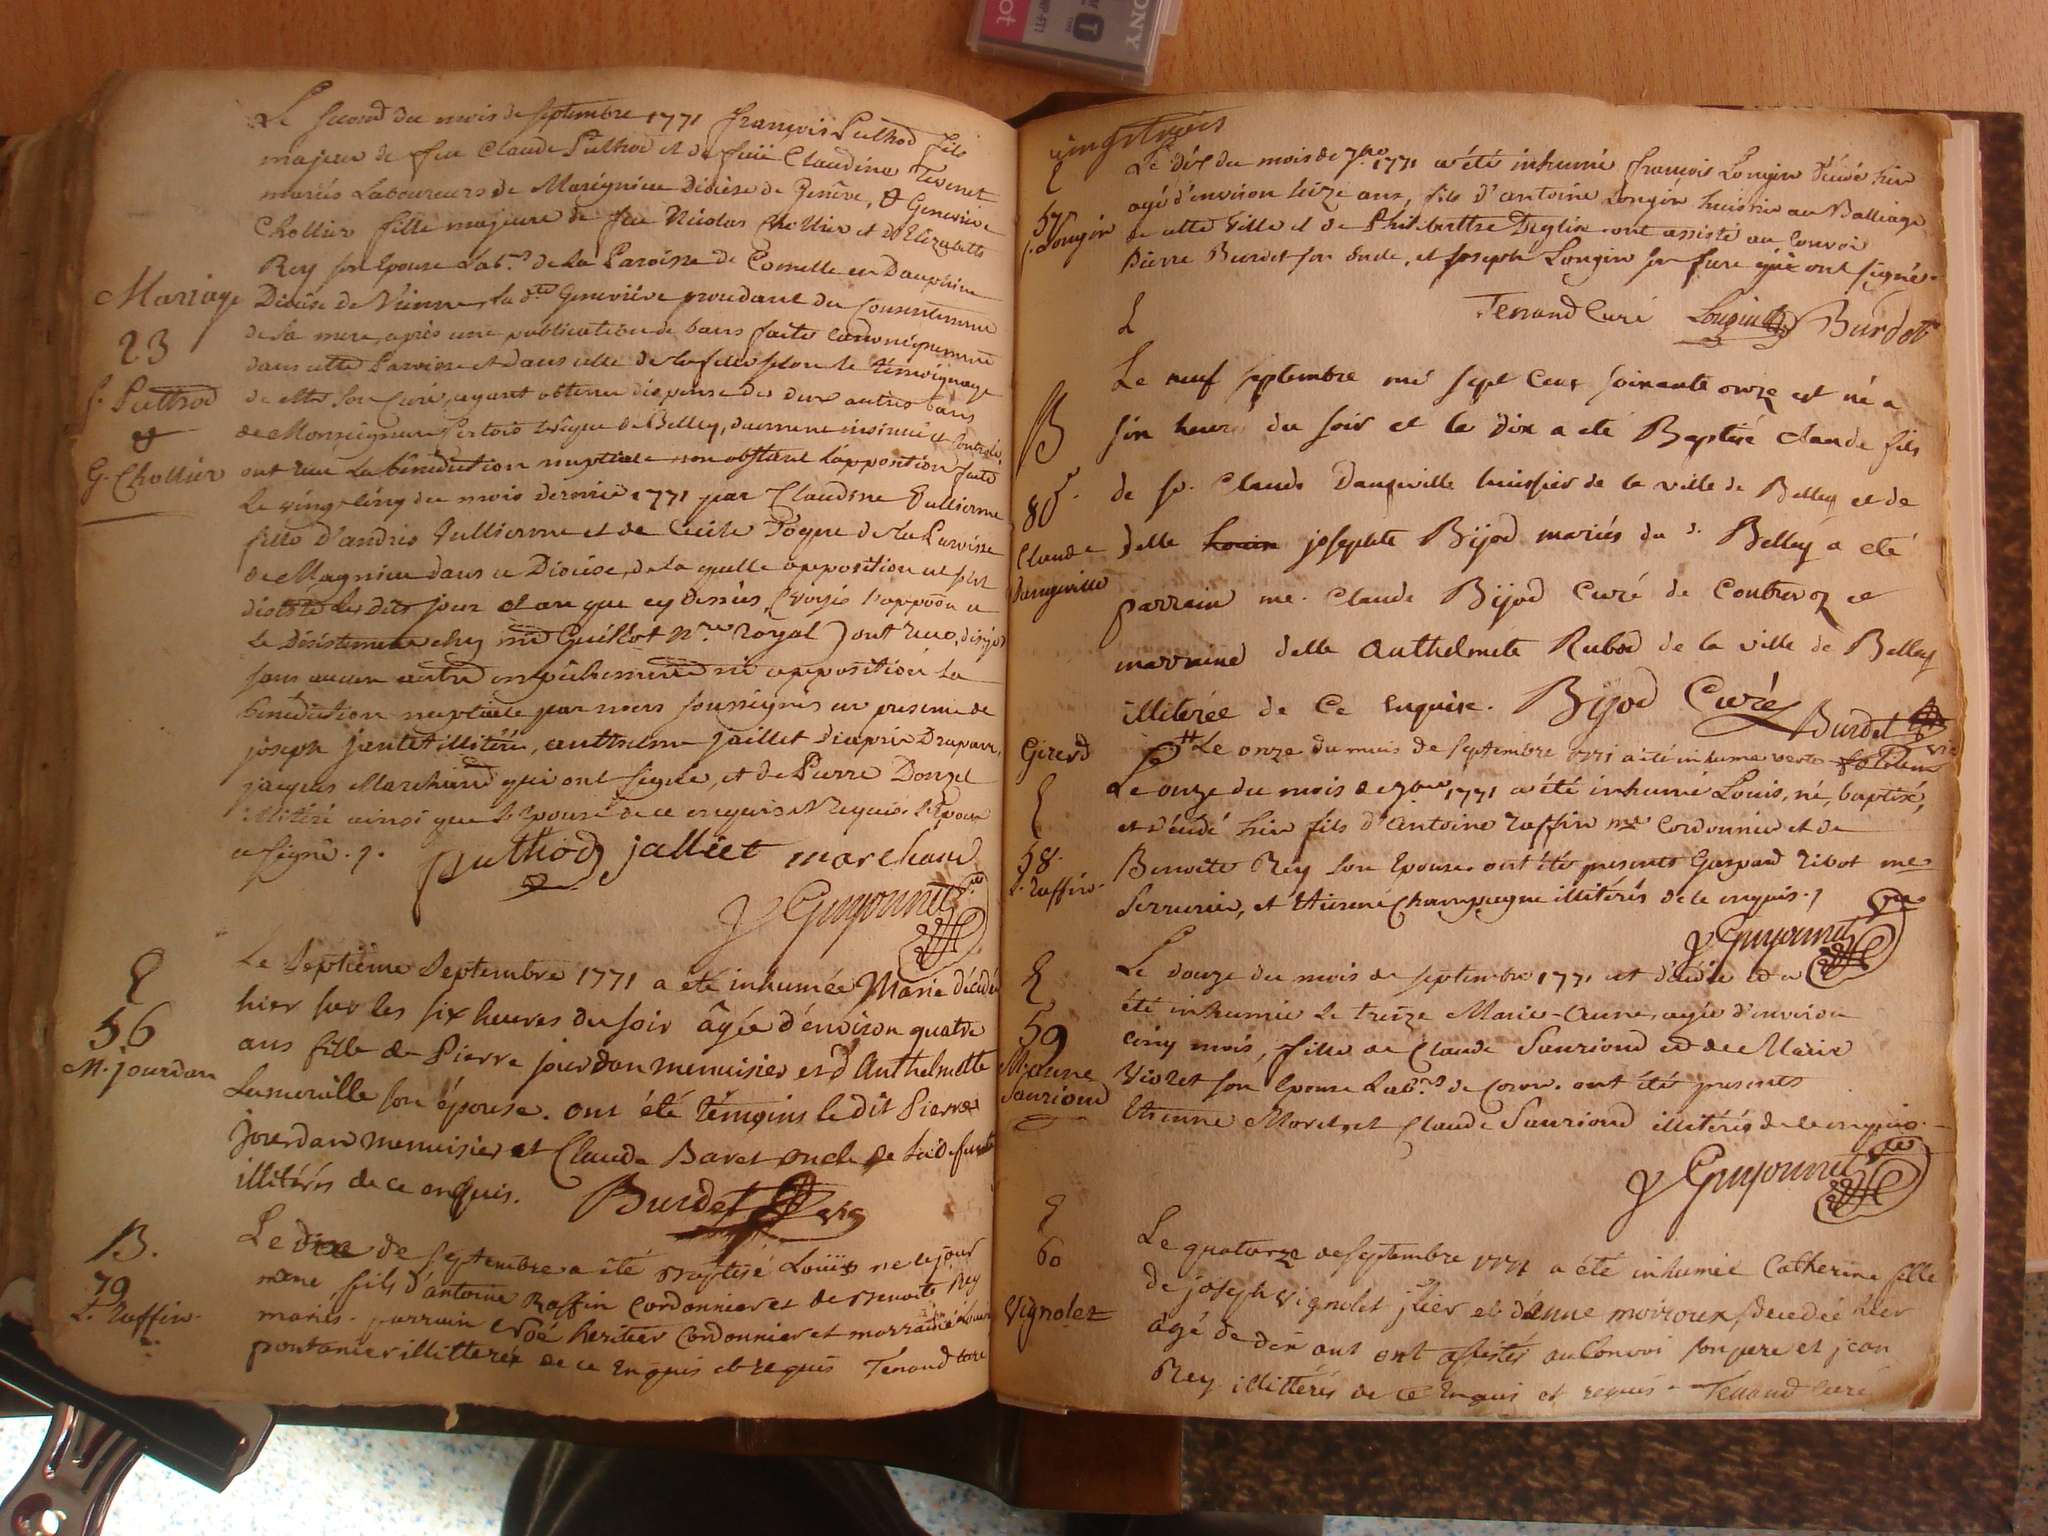 Le second du mois de septembre 1771 françois Puthod fils
majeur de feu Claude Puthod et de feüe Claudine Tevenet
mariés Laboureurs de Marignieu Diocèse de Genêve, & Genevieve
Chollier fille majeure de feu Nicolas Chollier et d'Elizabeth
Rey son Epouse Lab.rs de la Paroisse de Comelle en Dauphiné
Mariage
23
f. Puthod
&
G. Chollier
Diocèse de Vienne, la d.te Geneviéve procedant du Consentement
de sa mere, après une publication de bans faite canoniquement
dans cette Paroisse et dans celle de la fille selon le témoignage
de son Curé, ayant obtenu dispense des deux autres bans
de Monseigneur Evêque de Belley, duement insinué et Controlé,
ont reçu la bénédiction nuptiale non obstant l'opposition faite
Le vingt cinq du mois dernier 1771 par Claudine Vullierme
fille d'andrée Vullierme et de Cecile de la Paroisse
de Magnieu dans ce Diocèse, de la quelle opposition elle s'est
les dits jour et an que cy dessus,
le Désistement chez me Guillot N.re Royal) ont reçu, dis-je
sans aucun autre empêchement ni opposition la
bénédiction nuptiale par nous soussignés en presence de
joseph jantet illitéré, anthelme jaillet Drapier,
jacques Marchand qui ont signé, et de Pierre Donzel
illitéré ainsi que l'Epouse de ce enquis & Requis. l'Epoux
a signé.
Puthod jalliet marchand
Guyonnet
E
56
M. jourdan
Le Septiéme Septembre 1771 a été inhumée Marie décédée
hier sur les six heures du soir âgée d'environ quatre
ans fille de Pierre jourdan menuisier et d'Anthelmette
Lamorville son épouse. ont été témoins le dit Pierre
jourdan menuisier et Claude Baret oncle de la defunte
illitérés de ce enquis. Burdet vic
B.
79
L. Raffin
Le dix de septembre a été Baptisé Louïs ne le jour
même, fils d'antoine Raffin Cordonnier et de Benoite Rey
mariés. parrain Noé heritier Cordonnier et marraine
pontanier illitterée de ce enquis et requis Tenand curé
vingt trois
E
57
f. Longin
Le dix du mois de 7bre 1771 a été inhumé françois Longin décédé hier
agé d'environ seize ans, fils d'antoine Longin huissier au Balliage
de cette Ville et de Philiberthe Deglin. ont assisté au Convoi
Pierre Burdet son Oncle, et joseph Longin son frere qui ont signé.
Tenand Curé Longin Burdet
B
80
Claude
Dangeville
Le neuf septembre mil sept Cent soixante onze est né a
six heures du soir et le dix a eté Baptisé claude fils
de sr. Claude Dangeville huissier de la ville de Belley et de
delle josephte Bijod mariés du d. Belley a eté
parrain me. Claude Bijod Curé de Contrevoz et
marraine delle Anthelmete Rubod de la ville de Belley
illiterée de Ce enquise. Bijod Curé
Burdet vic
Girerd
Le onze du mois de septembre 1771 a été inhumé
E
58.
L. Raffin.
Le onze du mois de 7bre 1771 a été inhumé Louis, né, baptisé,
et décédé hier fils d'Antoine Raffin me Cordonnier et de
Benoite Rey son Epouse. ont été presents Gaspard Ribot me
Serrurier, et Etienne Champagne illitérés de ce enquis.
Guyonnet
E
59
M. anne
Sauriond
Le douze du mois de septembre 1771 est décédée et a
été inhumée le treize Marie-Anne, agée d'environ
cinq mois, fille de Claude Sauriond et de Marie
Violet son Epouse Lab.rs de Coron. ont été presents
Etienne Moret, et Claude Sauriond illitérés de ce enquis.
Guyonnet
E
60
Vignolet
Le quatorze de septembre 1771 a été inhumée Catherine fille
de joseph Vignolet et d'anne moiroux, decedée hier
agé de dix ans ont assistés au Convoi son pere et jean
Rey illittérés de ce enquis et requis. Tenand curé
SONY